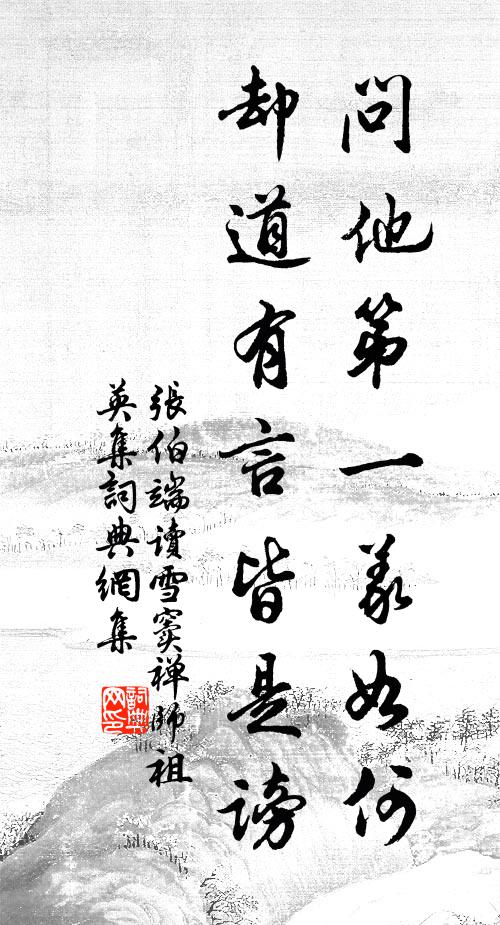 問他第一義如何
却道有言皆是謗
張伯端讀雪竇禅師祖
英集詞典網集
詞典
网印